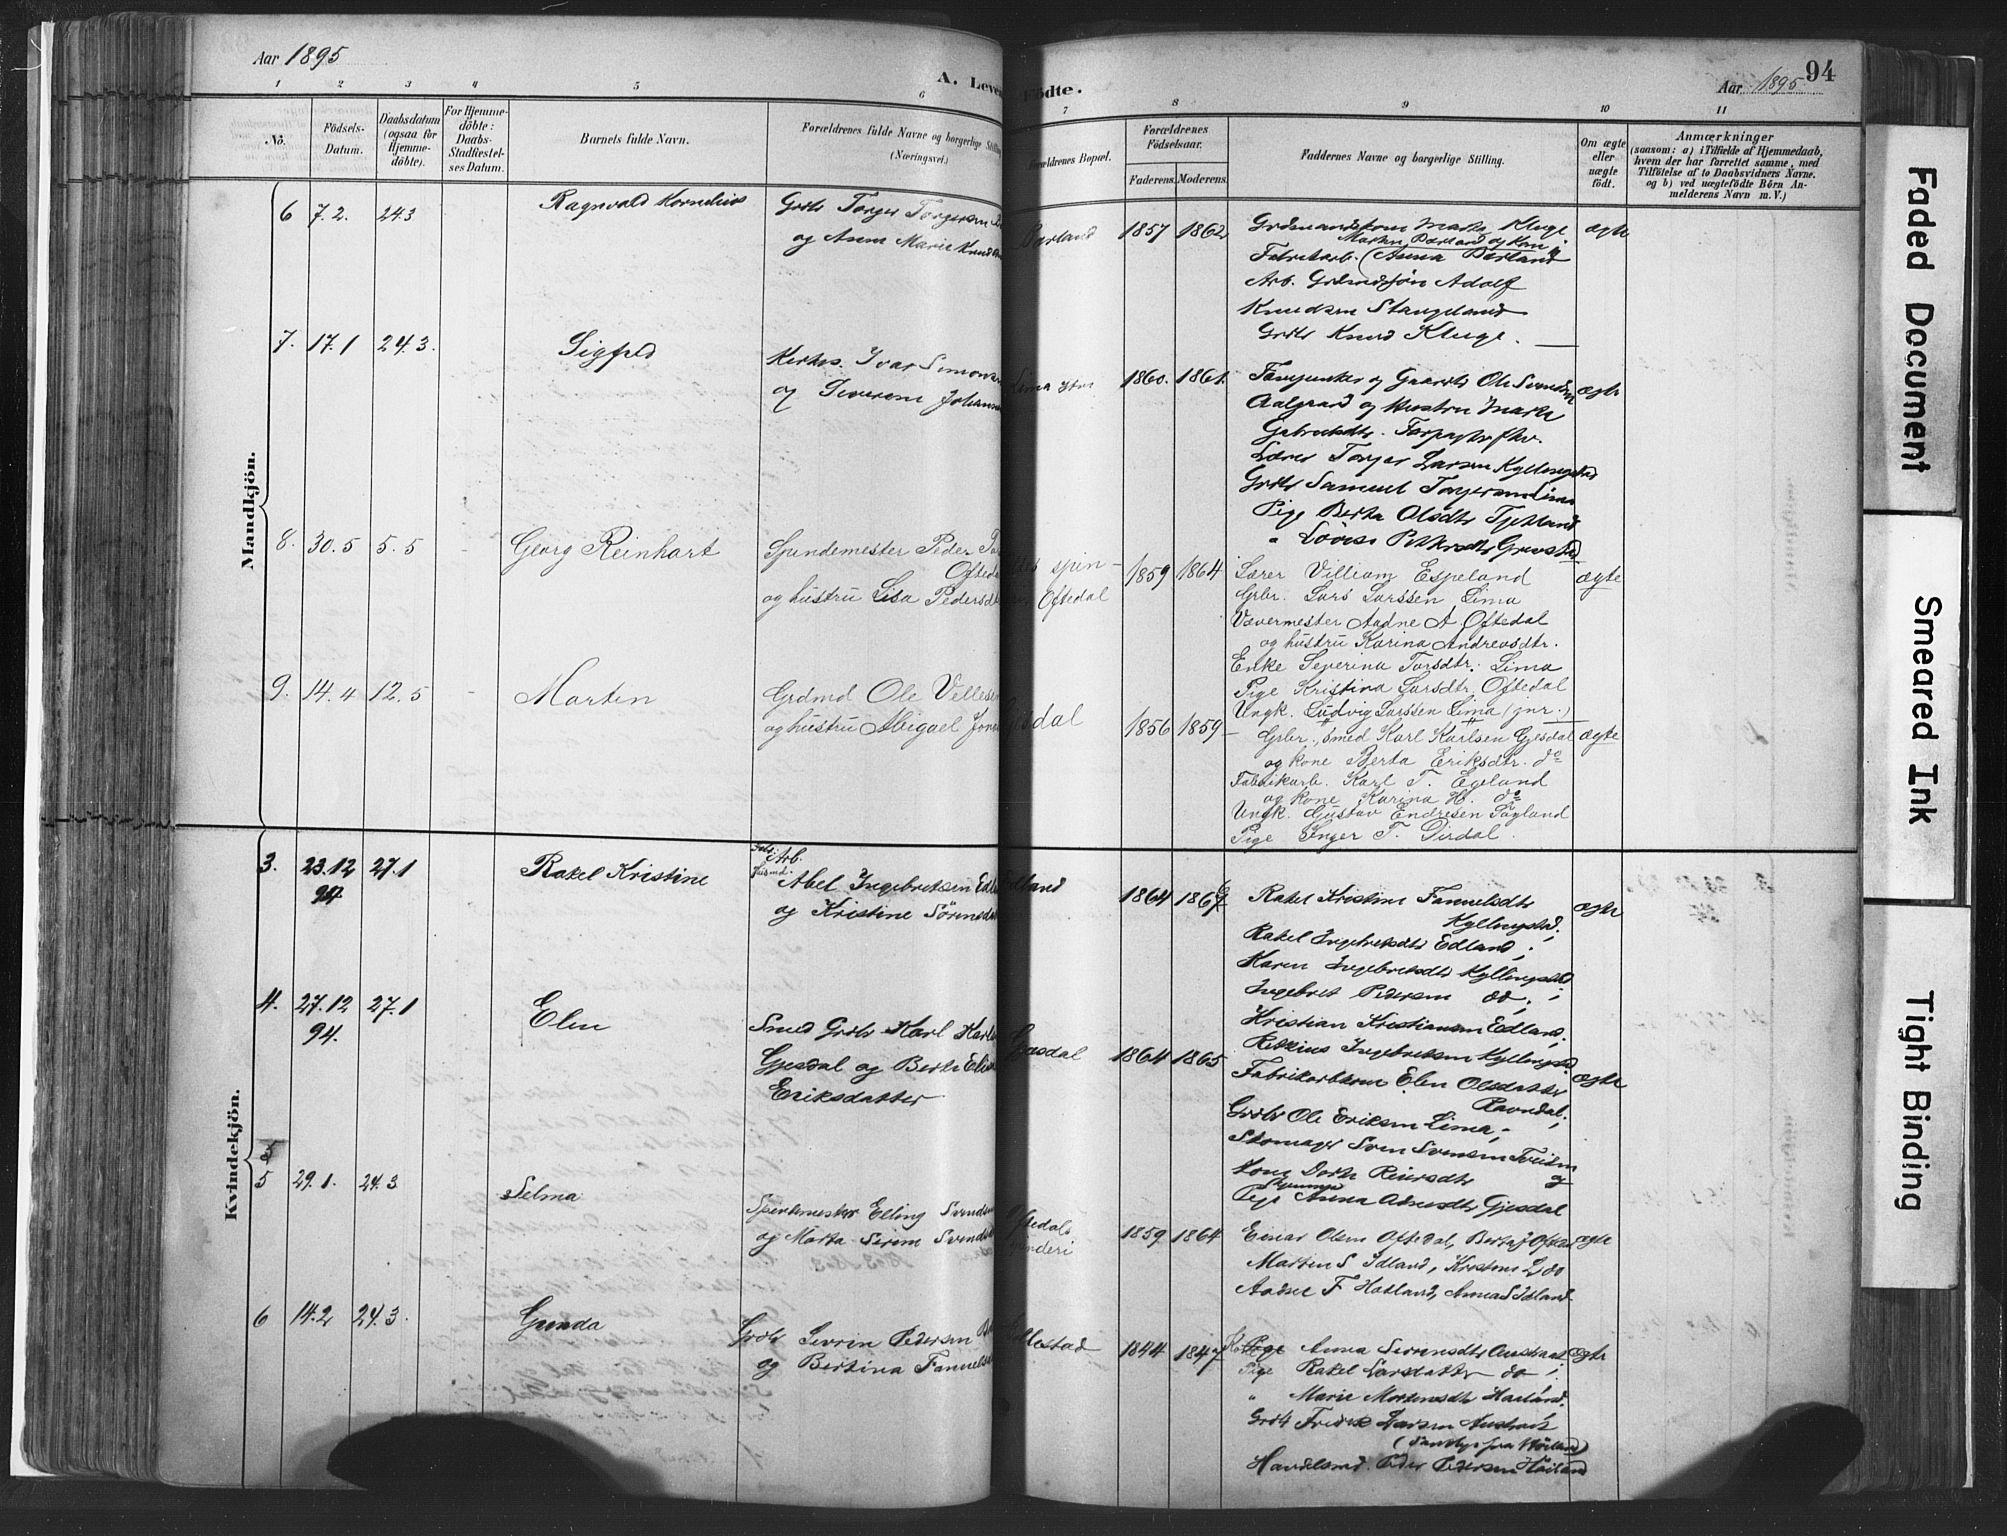 Aar 1895
A. Levende Födte.
Aar 1895
94
1 2 3 4 5 6 7 8 9 10 11
No.
Födsels-
Datum.
Daabsdatum
(ogsaa för
Hjemme-
döbte).
For Hjemme-
döbte:
Daabs-
Stadfæstel-
ses Datum.
Barnets fulde Navn.
Forældrenes fulde Navne og borgerlige Stilling
(Næringsvei.)
Forældrenes Bopæl.
Forældrenes
Födselsaar.
Faderens. Moderens.
Faddernes Navne og borgerlige Stilling.
Om ægte
eller
uægte
födt.
Anmærkninger
(saasom: a) i Tilfælde af Hjemmedaab,
hvem der har forrettet samme, med
Tilföielse af to Daabsvidners Navne.
og b) ved uægtefödte Börn An-
melderens Navn m. V.)
Mandkjön.
6 7.2. 24.3 Ragnvald Kornelius
Grdbr Torger Torgersen
og Anne Marie Knuds
Bærland 1857 1862
Grdmandskone Marta Kluge
Morten Bærland og Kone
Fabrikarb. (Anna Bærland
Arb. Grdmdsøn Adolf
Knudsen Stangeland
Grdbr Knud Kluge.
ægte
7. 17.1 24.3. Sigfred
Kirkes. Ivar Simonsen
og Severine Johanne
Lima 1860. 1861.
Forpagter og Gaardbr Ole Svendsen
Aalgaard og Hustru Marta
Gabrielsdtr.
Lærer Torger Larsen Kyllingstad
Grdbr Samuel Torgersen Lima
Pige Berta Olsdtr Tjetland
" Lovise Pettersdtr
ægte
8. 30.5 5.5 - Georg Reinhart
Spindemester Peder
Oftedal
og hustru Lisa Pedersdtr
spin-
Oftedal
1859 1864
Lærer Villiam Espeland
Grbr. Lars Larssen Lima
Vævermester Aadne A. Oftedal
og hustru Karina Andreasdtr.
Enke Severina Torsdtr. Lima
Pige Kristina Larsdtr. Oftedal
Ungk. Ludvig Larssen Lima (jnr.)
ægte
9. 14.4 12.5 - Morten
Grdmd Ole Villesen
og hustru Abigael Jons
Gjesdal 1856 1859
Grbr., smed Karl Karlsen Gjesdal
og kone Berta Eriksdtr. do
Fabrikarb. Karl T. Egeland
og kone Karina H. do
Ungk. Gustav Endresen Fagland
Pige Inger T. Dirdal.
ægte
Kvindekjön.
3. 23.12
94
27.1 Rakel Kristine
Arb.
Abel Ingebretsen Edland
og Kristine Sørensdtr
Edland 1864 1867
Rakel Kristine Fannelsdtr
Kyllingstad;
Rakel Ingebretsdtr Edland;
Karen Ingebretsdtr Kyllingstad
Ingebret Pedersen do.;
Kristian Kristiansen Edland;
Ingebretsen Kyllingstad
ægte
4. 27.12
94.
27.1 Elen
Smed Grdbr Karl Karlsen
Gjesdal og Berta Elise
Eriksdatter
Gjesdal 1864 1865
Fabrikarbkone Elen Olsdatter
Ravndal;
Grdbr Ole Eriksen Lima;
Skomager Sven Svensen
Kone Dorte Reiersdtr og
Pige Anna Adnesdtr Gjesdal
ægte
5
5 29.1. 24.3 Selma
Spindemester Elling Svendsen
og Marta Serine Svendsdtr
Oftedals
Spinderi
1859 1864
Einar Olsen Oftedal, Berta J Oftedal
Morten S Idland, Kristine L do
Aadne F Hatland, Anna S Idland
ægte
6 14.2 24.3. Gunda
Grdbr Sevrin Pedersen
og Bertina Fannelsdtr
1844 1847
Kone Anna Sevrensdtr Austraat
Pige Rakel Larsdatter do;
" Marie Mortensdtr Harland;
Grdbr Fredrik Larsen Austraat
(Samtlige fra Høiland)
Handelsmd. Peder Pedersen Høiland
ægte
Faded Document
Smeared Ink
Tight Binding